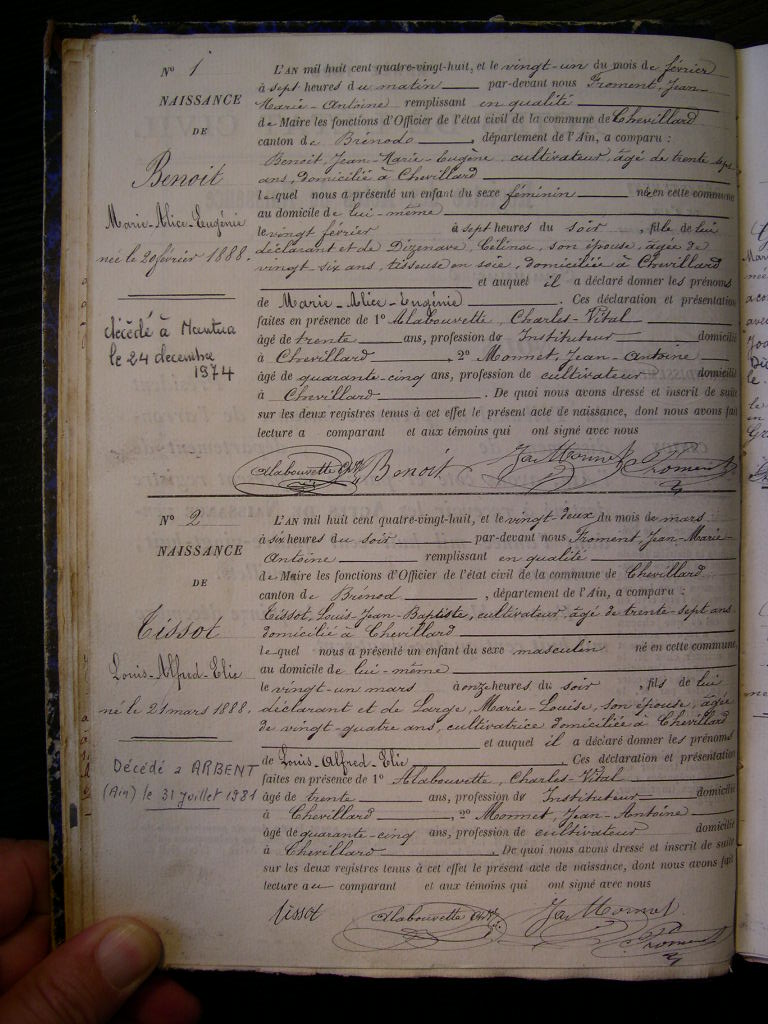 N° 1
NAISSANCE
DE
Benoit
Marie-Alice-Eugénie
née le 20 février 1888.
décédé à Nantua
le 24 decembre
1974
L'AN mil huit cent quatre-vingt-huit, et le vingt-un du mois de février
à sept heures du matin par-devant nous Froment, Jean-
Marie-Antoine remplissant en qualité
de Maire les fonctions d'Officier de l'état civil de la commune de Chevillard
canton de Brénod, département de l'Ain, a comparu :
Benoit, Jean-Marie-Eugène, cultivateur, âgé de trente sept
ans, domicilié à Chevillard
lequel nous a présenté un enfant du sexe féminin née en cette commune
au domicile de lui-même
le vingt février à sept heures du soir, fille de lui
déclarant et de Dizenave, Célina, son épouse, âgée de
vingt-six ans, tisseuse en soie, domiciliée à Chevillard
et auquel il a déclaré donner les prénoms
de Marie-Alice-Eugénie. Ces déclaration et présentation
faites en présence de 1° Alabouvette, Charles-Vital
âgé de trente ans, profession de Instituteur domicilié
à Chevillard, 2° Monnet, Jean-Antoine
âgé de quarante-cinq ans, profession de cultivateur domicilié
à Chevillard. De quoi nous avons dressé et inscrit de suite
sur les deux registres tenus à cet effet le présent acte de naissance, dont nous avons fait
lecture a comparant et aux témoins qui ont signé avec nous
Alabouvette Ch. V. Benoit Ja Monnet Froment
N° 2
NAISSANCE
DE
Tissot
Louis-Alfred-Elie
né le 21 mars 1888.
Décédé a ARBENT
(Ain) le 31 juillet 1981
L'AN mil huit cent quatre-vingt-huit, et le vingt-deux du mois de mars
à six heures du soir par-devant nous Froment, Jean-Marie-
Antoine remplissant en qualité
de Maire les fonctions d'Officier de l'état civil de la commune de Chevillard
canton de Brénod, département de l'Ain, a comparu :
Tissot, Louis-Jean-Baptiste, cultivateur, âgé de trente-sept ans
domicilié à Chevillard
lequel nous a présenté un enfant du sexe masculin né en cette commune
au domicile de lui-même
le vingt-un mars à onze heures du soir, fils de lui
déclarant et de Large, Marie-Louise, son épouse, âgée
de vingt-quatre ans, cultivatrice domiciliée à Chevillard
et auquel il a déclaré donner les prénoms
de Louis-Alfred-Elie. Ces déclaration et présentation
faites en présence de 1° Alabouvette, Charles-Vital
âgé de trente ans, profession de Instituteur domicilié
à Chevillard, 2° Monnet, Jean-Antoine
âgé de quarante-cinq ans, profession de cultivateur domicilié
à Chevillard. De quoi nous avons dressé et inscrit de suite
sur les deux registres tenus à cet effet le présent acte de naissance, dont nous avons fait
lecture au comparant et aux témoins qui ont signé avec nous
Tissot Alabouvette Ch. V. Ja Monnet
Froment